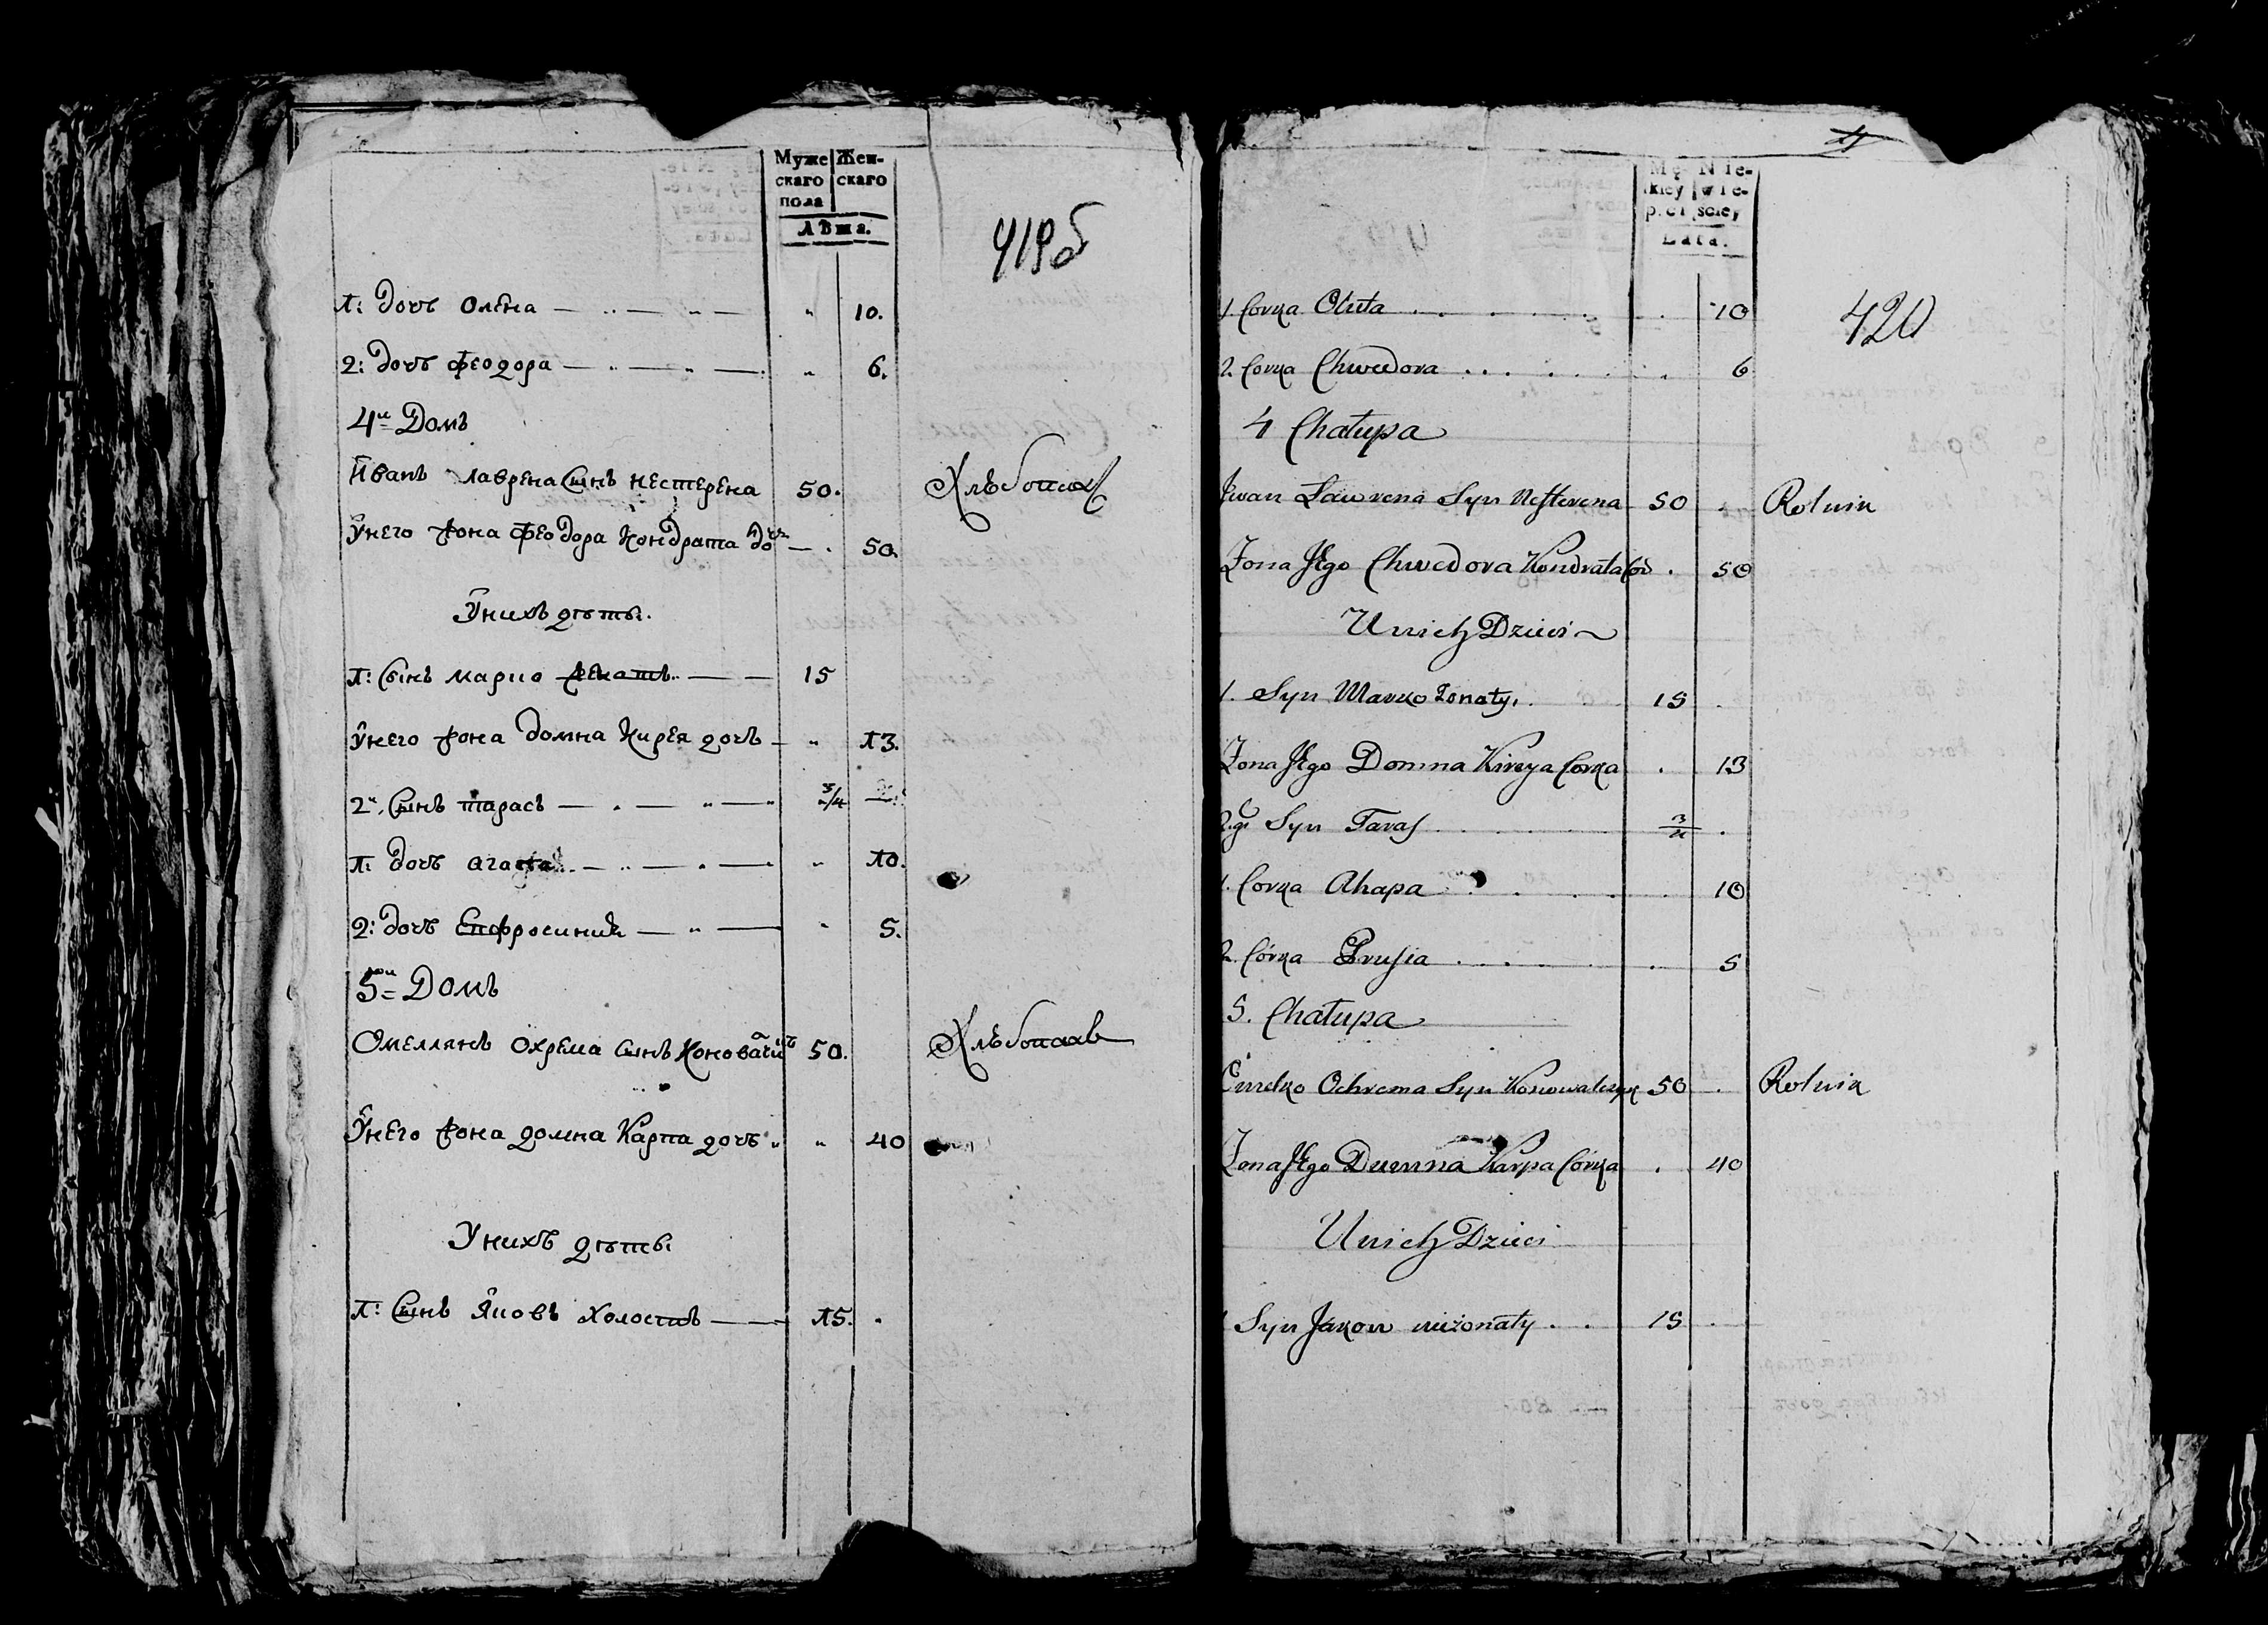 Муже Жен-
скаго скаго
пола
Лѣта.
419б
1: дочь олена — „ — „ — „ 10.
2: дочь феодора — „ — „ — „ 6.
4й Домъ
Иванъ лаврена Сынъ нестерена 50. Хлѣбопашъ
Унего жона феодора Кондрата дочь — . 50.
Унихъ дѣты.
1: Сынъ марко женатъ — — 15
Унего жона домна Кирея дочь — „ 13.
2й Сынъ тарасъ — „ — „ — „ 3/4
1: дочь агафа — „ — „ — „ 10.
2: дочь Епфросиния — „ — „ 5.
5й Домъ
Омеллянъ охрема сынъ 50. Хлѣбопашъ
Унего жона домна Карпа дочь „ „ 40
Унихъ дѣты
1: Сынъ Яковъ холостъ — 15. .
Mę- Nie-
skiey wie-
płci sciey
Lata.
420
1. Corka Oluta . . . . . . 10
2. Corka Chwedora . . . . . . 6
4 Chałupa
Jwan Lawrena Syn Nesterena 50 . Rolnik
Zona Jego Chwedora Kondrata Cor . 50
Unich Dzieci
1. Syn Marko Zonaty. . 15 .
Zona Jego Domna Kireya Corka . 13
2gi Syn Taras . . . . 3/4 .
1. Corka Ahapa . . . . . 10
2. Córka Prusia . . . . . 5
5. Chałupa
Emelko Ochrema Syn Konowalczyk 50 . Rolnik
Zona Jego Duemna Karpa Córka . 40
Unich Dzieci
1 Syn Jakow nieżonaty . . 15 .